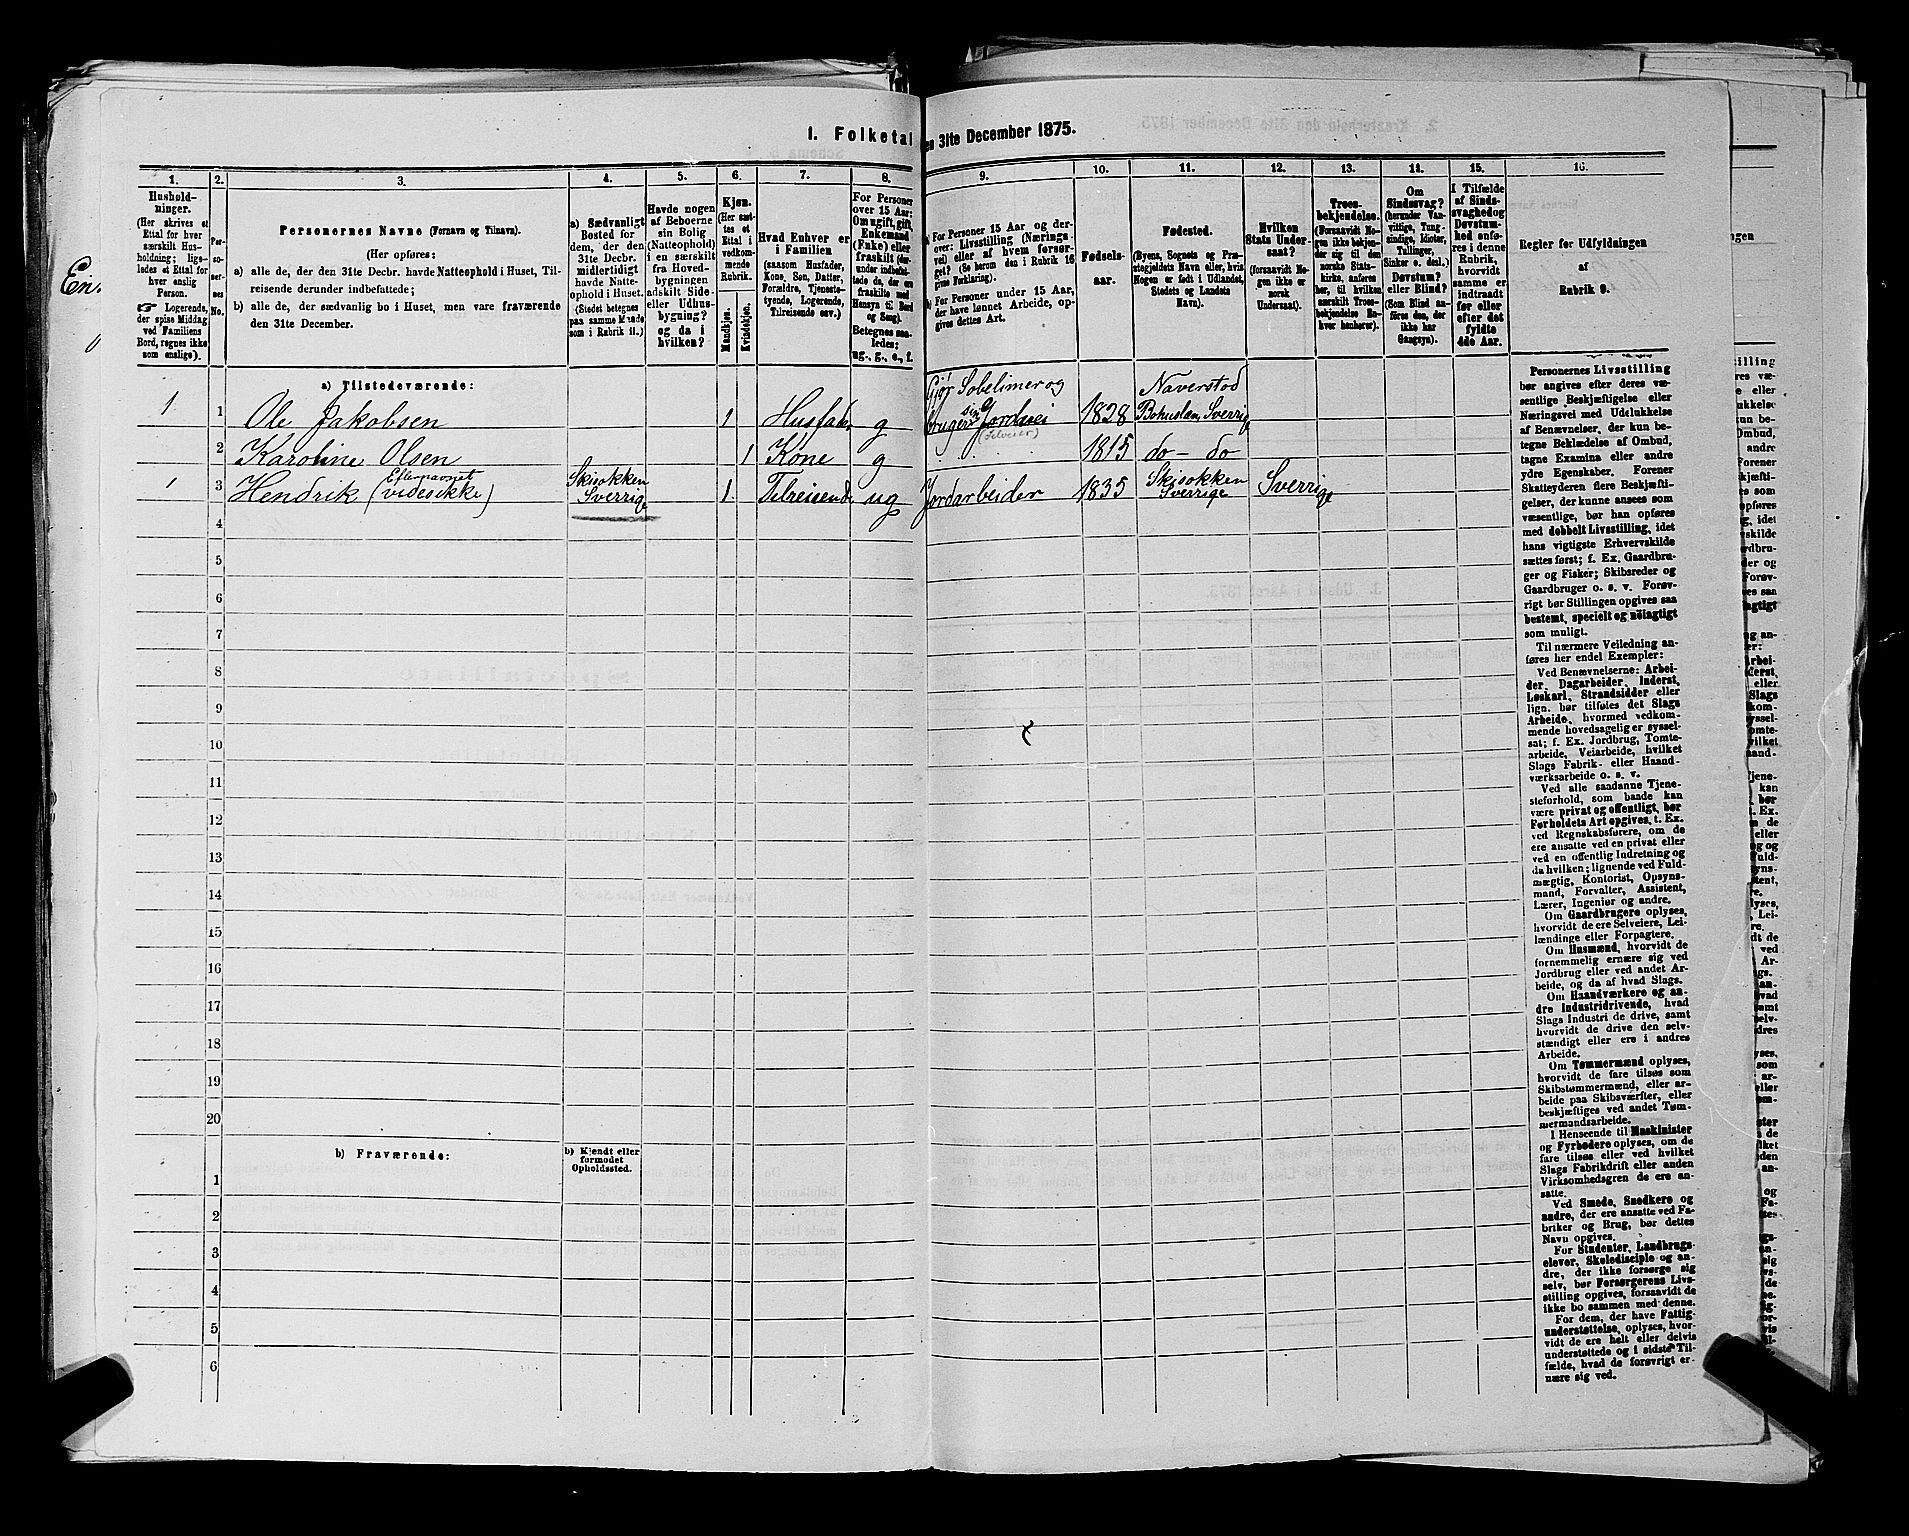 1. Folketal
en 31te December 1875.
1.
2.
3.
4.
5.
6.
7.
8.
9.
10.
11.
12.
13.
14.
15.
16.
Hushold-
ninger.
(Her skrives et
Ettal for hver
særskilt Hus-
holdning; lige-
ledes et Ettal for
hver enslig
Person.
☞ Logerende,
der spise Middag
ved Familiens
Bord, regnes ikke
som enslige).
Per-
so-
ner-
nes
No.
Personernes Navne (Fornavn og Tilnavn).
(Her opføres:
a) alle de, der den 31te Decbr. havde Natteophold i Huset, Til-
reisende derunder indbefattede;
b) alle de, der sædvanlig bo i Huset, men vare fraværende
den 31te December.
a) Sædvanligt
Bosted for
dem, der den
31te Decbr.
midlertidigt
havde Natte-
ophold i Huset.
(Stedet betegnes
paa samme Maade
som i Rubrik 11.)
Havde nogen
af Beboerne
sin Bolig
(Natteophold)
i en særskilt
fra Hoved-
bygningen
adskilt Side-
eller Udhus-
bygning?
og da i
hvilken?
Kjøn.
(Her sæt-
tes et
Ettal i
vedkom-
mende
Rubrik.
Mandkjøn.
Kvindekjøn.
Hvad Enhver er
i Familien
(saasom Husfader,
Kone, Søn, Datter,
Forældre, Tjeneste-
tyende, Logerende,
Tilreisende osv.)
For Personer
over 15 Aar:
Om ugift, gift,
Enkemand
(Enke) eller
fraskilt (der-
under indbefat-
tede de, der ere
fraskilte med
Hensyn til Bord
og Seng).
Betegnes saa-
ledes;
ug., g., e., f.
a) For Personer 15 Aar og der-
over: Livsstilling (Nærings-
vei) eller af hvem forsør-
get? (Se herom den i Rubrik 16
givne Forklaring).
b) For Personer under 15 Aar,
der have lønnet Arbeide, op-
gives dettes Art.
Fødsels-
aar.
Fødested.
(Byens, Sognets og Præ-
stegjeldets Navn eller, hvis
Nogen er født i Udlandet,
Stedets og Landets
Navn).
Hvilken
Stats Under-
saat?
(forsaavidt No-
gen ikke er
norsk
Undersaat).
Troes-
bekjendelse.
(Forsaavidt No-
gen ikke bekjen-
der sig til den
norske Stats-
kirke, anføres
her, til hvilken
særskilt Troes-
bekjendelse En-
hver henhører).
Om
Sindssvag?
(herunder Van-
vittige, Tung-
sindige, Idioter,
Tullinger,
Sinker o. desl.)
Døvstum?
eller Blind?
(Som Blind an-
føres den, der
ikke har
Gangsyn).
I Tilfælde
af Sinds-
svaghed og
Døvstum-
hed anfø-
res i denne
Rubrik,
hvorvidt
samme er
indtraadt
før eller
efter det
fyldte
4de Aar.
Regler for Udfyldningen
af
Rubrik 9.
a) Tilstedeværende:
1 1 Ole Jakobsen 1 Husfader g Gjør Sobelimer og
bruger sin Jordvei
(Selveier) 1828 Naverstod
Bohuslan, Sverrig
2 Karoline Olsen 1 Kone g 1815 do - do
1 3 Hendrik (Efternavnet
vides ikke) Skisokken
Sverrige 1 Tilreisende ug Jordarbeider 1835 Skisokken
Sverrige Sverrige
4
5
6
7
8
9
10
11
12
13
14
15
16
17
18
19
20
b) Fraværende:
b) Kjendt eller
formodet
Opholdssted.
1
2
3
4
5
6
Personernes Livsstilling
bør angives efter deres væ-
sentlige Beskjæftigelse eller
Næringsvei med Udelukkelse
af Benævnelser, der kun be-
tegne Beklædelse af Ombud,
tagne Examina eller andre
ydre Egenskaber. Forener
Skatteyderen flere Beskjæfti-
gelser, der kunne ansees som
væsentlige, bør han opføres
med dobbelt Livsstilling, idet
hans vigtigste Erhvervskilde
sættes først; f. Ex. Gaardbru-
ger og Fisker; Skibsreder og
Gaardbruger o. s. v. Forøv-
rigt bør Stillingen opgives saa
bestemt, specielt og nöiagtigt
som muligt.
Til nærmere Veiledning an-
føres her endel Exempler:
Ved Benævnelserne: Arbei-
der, Dagarbeider, Inderst,
Løskarl, Strandsidder eller
lign. bør tilføies det Slags
Arbeide, hvormed vedkom-
mende hovedsagelig er syssel-
sat; f. Ex. Jordbrug, Tomte-
arbeide, Veiarbeide, hvilket
Slags Fabrik- eller Haand-
værksarbeide o. s. v.
Ved alle saadanne Tjene-
steforhold, som baade kan
være privat og offentligt, bør
Forholdets Art opgives, t. Ex.
ved Regnskabsførere, om de
ere ansatte ved en privat eller
ved en offentlig Indretning og
da hvilken; lignende ved Fuld-
mægtig, Kontorist, Opsyns-
mand, Forvalter, Assistent,
Lærer, Ingeniør og andre.
Om Gaardbrugere oplyses,
hvorvidt de ere Selveiere, Lei-
lændinge eller Forpagtere.
Om Husmænd, hvorvidt de
fornemmelig ernære sig ved
Jordbrug eller ved andet Ar-
beide, og da af hvad Slags.
Om Haandværkere og an-
dre Industridrivende, hvad
Slags Industri de drive, samt
hvorvidt de drive den selv-
stændigt eller ere i andres
Arbeide.
Om Tømmermænd oplyses,
hvorvidt de fare tilsøs som
Skibstømmermænd, eller ar-
beide paa Skibsværfter, eller
beskjæftiges ved andet Tøm-
mermandsarbeide.
I Henseende til Maskinister
og Fyrbødere oplyses, om de
fare tilsøs eller ved hvilket
Slags Fabrikdrift eller anden
Virksomhedsgren de ere an-
satte.
Ved Smede, Snedkere og
andre, der ere ansatte ved Fa-
briker og Brug, bør dettes
Navn opgives.
For Studenter, Landbrugs-
elever, Skoledisciple og an-
dre, der ikke forsørge sig
selv, bør Forsørgerens Livs-
stilling opgives, forsaavidt de
ikke bo sammen med denne.
For dem, der have Fattig-
understøttelse, oplyses, hvor-
vidt de ere helt eller delvis
understøttede og i sidste Til-
fælde, hvad de forøvrigt er-
nære sig ved.